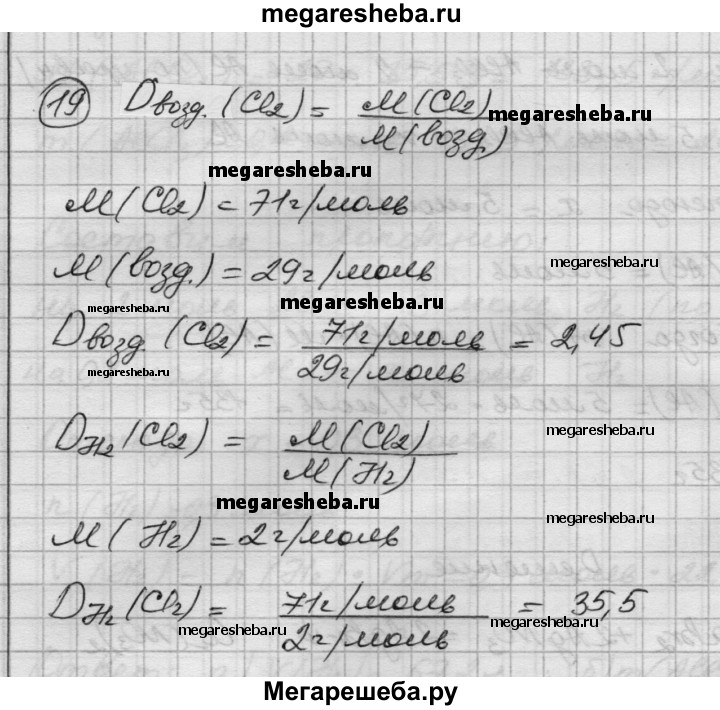 megaresheba.ru
19 Dвозд. (Cl2) = M(Cl2) / M(возд.)
megaresheba.ru
megaresheba.ru
M(Cl2) = 71 г/моль
megaresheba.ru
M(возд.) = 29 г/моль
megaresheba.ru
megaresheba.ru
megaresheba.ru
Dвозд. (Cl2) = 71 г/моль / 29 г/моль = 2,45
megaresheba.ru
DH2 (Cl2) = M(Cl2) / M(H2)
megaresheba.ru
megaresheba.ru
megaresheba.ru
M(H2) = 2 г/моль
DH2 (Cl2) = 71 г/моль / 2 г/моль = 35,5
megaresheba.ru
megaresheba.ru
Мегарешеба.ру